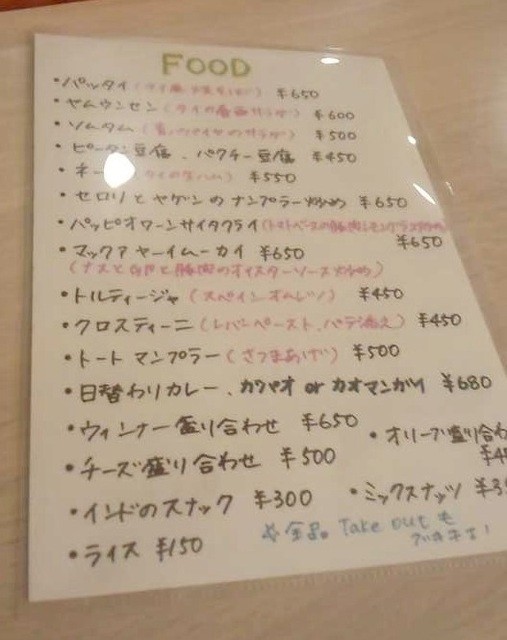 FOOD
・パッタイ(タイ風焼そば) ¥650
・ヤムウンセン(タイの春雨サラダ) ¥600
・ソムタム(青パパイヤのサラダ) ¥500
・ピータン豆腐、パクチー豆腐 ¥450
・ネー (タイの生ハム) ¥550
・セロリとヤゲンのナンプラー炒め ¥650
・パッピオワーンサイタクライ(トマトベースの豚肉レモングラス炒め)
¥650
・マックアヤーイムーカイ ¥650
(ナスと卵と豚肉のオイスターソース炒め)
・トルティージャ(スペインオムレツ) ¥450
・クロスティーニ(レバーペースト、バゲ添え) ¥450
・トートマンプラー(さつまあげ) ¥500
・日替わりカレー、ガパオ or カオマンガイ ¥680
・ウィンナー盛り合わせ ¥650
・オリーブ盛り合わ
¥4
・チーズ盛り合わせ ¥500
・インドのスナック ¥300
・ミックスナッツ ¥3
・ライス ¥150
☆全品。Take outも